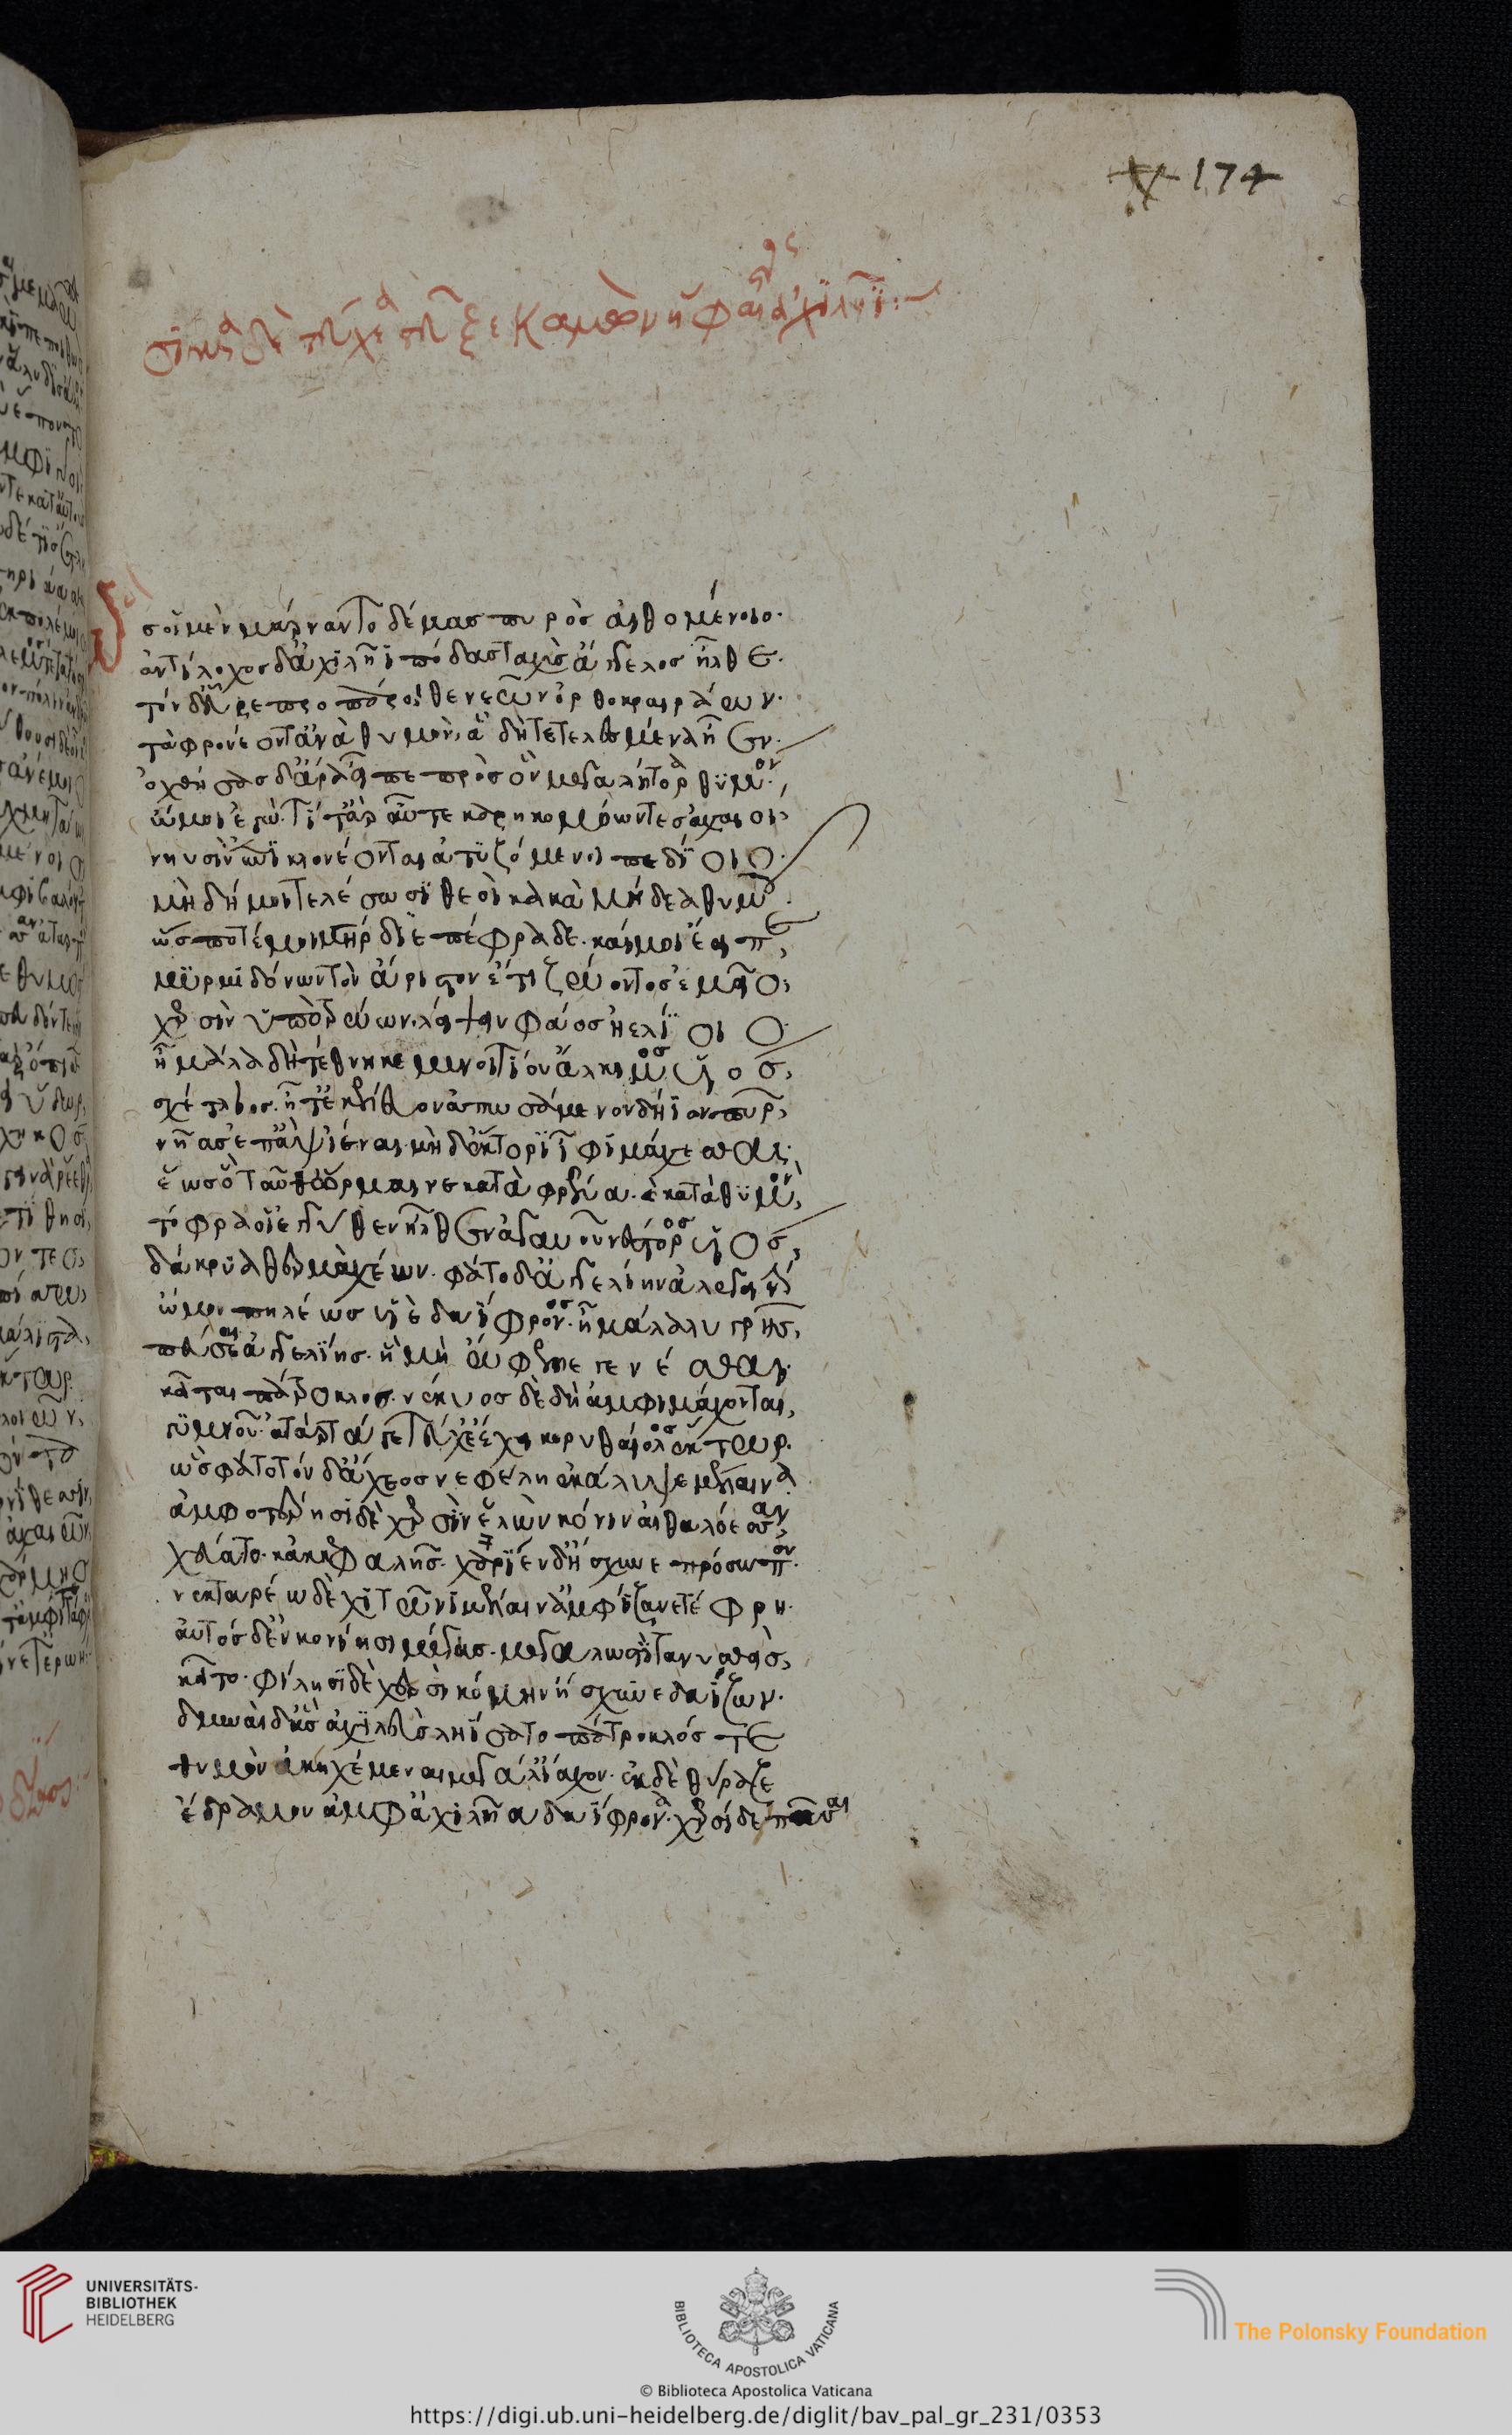 174
ὣς οἱ μὲν μάρναντο δέμας πυρὸς αἰθομένοιο·
ἀντίλοχος δ' ἀχιλῆϊ πόδας ταχὺς ἄγγελος ἦλθε·
τὸν δ' εὗρε προπάροιθε νεῶν ὀρθοκραιράων·
τὰ φρονέοντ' ἀνὰ θυμὸν, ἃ δὴ τετελεσμένα ἦεν·
ὀχθήσας δ' ἄρα εἶπε πρὸς ὃν μεγαλήτορα θυμόν·
ὤμοι ἐγὼ· τί τἂρ αὖτε καρηκομόωντες ἀχαιοὶ
νηυσὶν ἔπι κλονέονται ἀτυζόμενοι πεδίοιο·
μὴ δή μοι τελέσωσι θεοὶ κακὰ κήδεα θυμῷ·
ὥς ποτέ μοι μήτηρ διεπέφραδε· καί μοι ἔειπε,
μυρμιδόνων τὸν ἄριστον ἔτι ζώοντος ἐμεῖο,
χερσὶν ὑπὸ τρώων λείψειν φάος ἠελίοιο·
ἦ μάλα δὴ τέθνηκε μενοιτίου ἄλκιμος υἱός,
σχέτλιος· ἦ τ' ἐκέλευον ἀπωσάμενον δήϊον πῦρ,
νῆας ἔπ' ἂψ ἰέναι· μὴ δ' ἕκτορι ἶφι μάχεσθαι·
ἕως ὃ ταῦθ' ὥρμαινε κατὰ φρένα καὶ κατὰ θυμόν,
τόφρα οἱ ἐγγύθεν ἦλθεν ἀγαυοῦ νέστορος υἱός,
δάκρυα θερμὰ χέων· φάτο δ' ἀγγελίην ἀλεγεινήν
ὤμοι πηλέως υἱὲ δαΐφρονος· ἦ μάλα λυγρῆς,
πεύσεαι ἀγγελίης· ἣ μὴ ὤφελλε γενέσθαι·
κεῖται πάτροκλος· νέκυος δὲ δὴ ἀμφιμάχονται,
γυμνοῦ· ἀτὰρ τά γε τεύχε' ἔχει κορυθαίολος ἕκτωρ·
ὣς φάτο τὸν δ' ἄχεος νεφέλη ἐκάλυψε μέλαινα·
ἀμφοτέρῃσι δὲ χερσὶν ἑλὼν κόνιν αἰθαλόεσσαν,
χεύατο· κακκεφαλῆς· χαρίεν δ' ᾔσχυνε πρόσωπον·
νεκταρέῳ δὲ χιτῶνι μέλαιν' ἀμφίζανε τέφρη·
αὐτὸς δ' ἐν κονίῃσι μέγας· μεγαλωστὶ τανυσθεὶς,
κεῖτο· φίλῃσι δὲ χερσὶ κόμην ᾔσχυνε δαΐζων·
δμωαὶ δ' ἃς ἀχιλεὺς ληΐσατο πάτροκλός τε
θυμὸν ἀκηχέμεναι μεγάλ' ἴαχον· ἐκ δὲ θύραζε
ἔδραμον ἀμφ' ἀχιλῆα δαΐφρονα· χερσὶ δὲ πᾶσαι
UNIVERSITÄTS-
BIBLIOTHEK
HEIDELBERG
BIBLIOTECA APOSTOLICA VATICANA
The Polonsky Foundation
© Biblioteca Apostolica Vaticana
https://digi.ub.uni-heidelberg.de/diglit/bav_pal_gr_231/0353